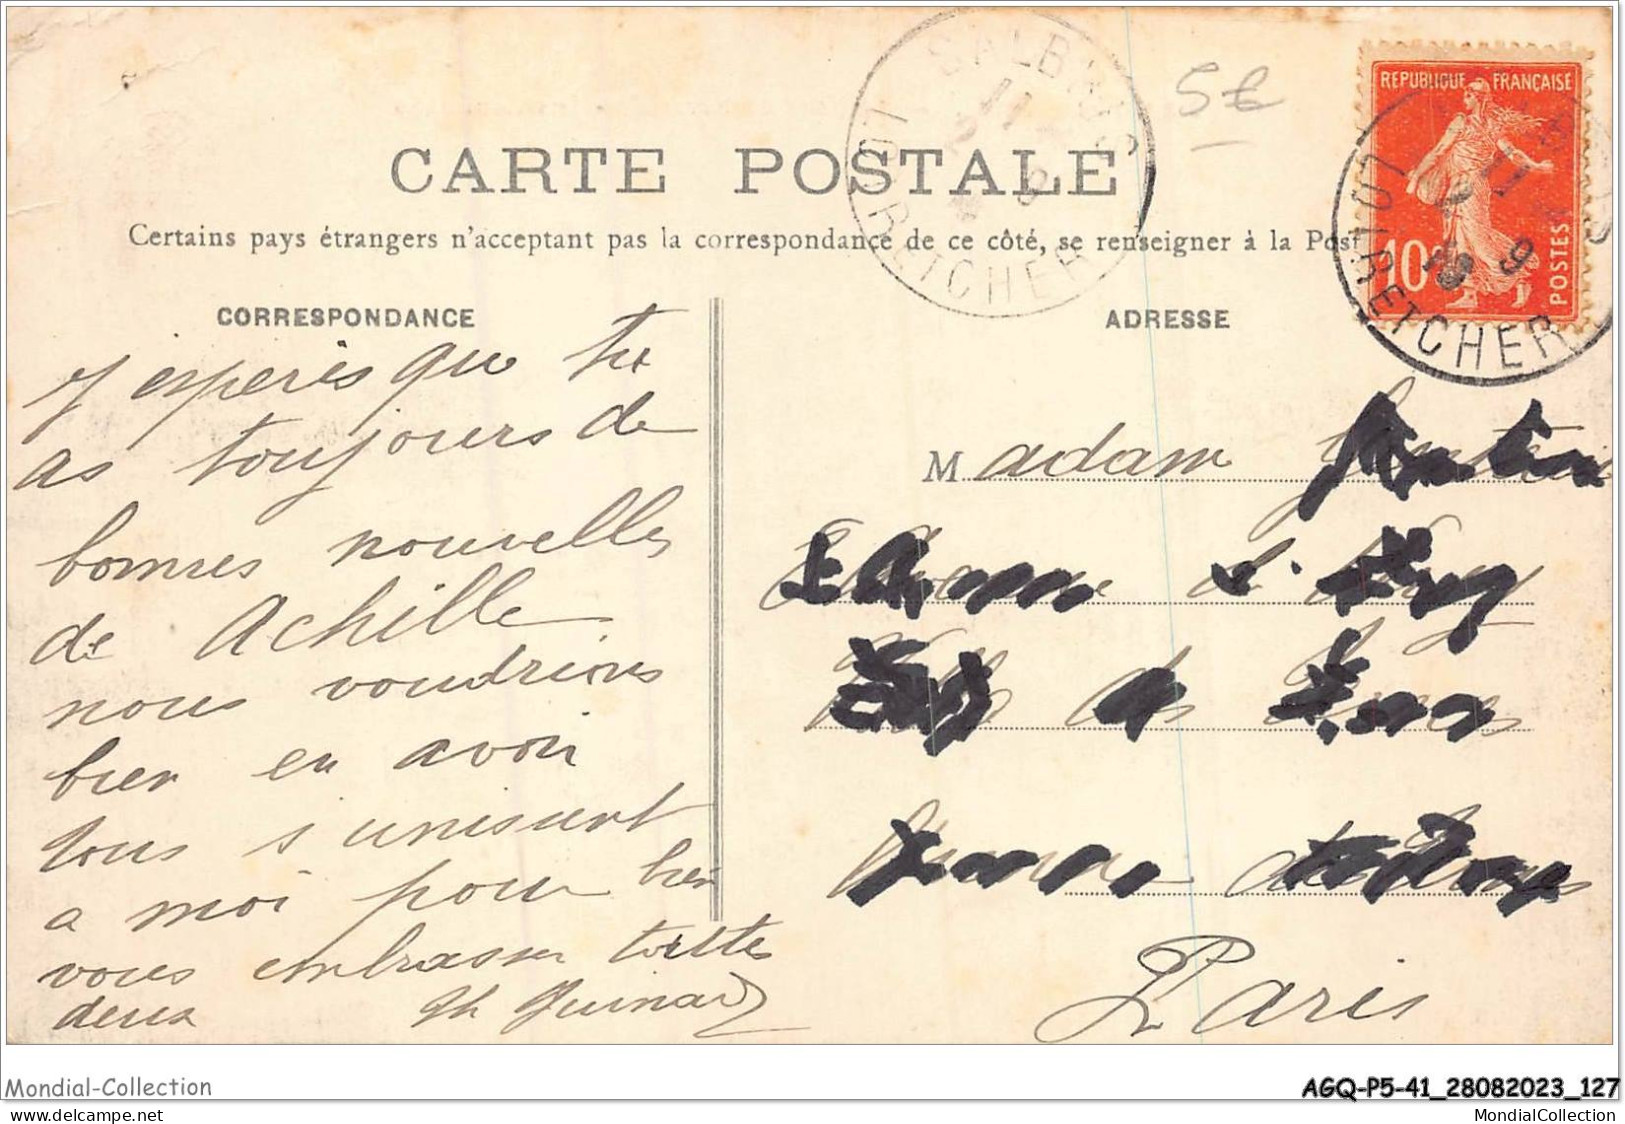 SALBRIS
LOIR ET CHER
5€
REPUBLIQUE FRANÇAISE
10c
POSTES
LOIR ET CHER
CARTE POSTALE
Certains pays étrangers n'acceptant pas la correspondance de ce côté, se renseigner à la Post
CORRESPONDANCE
ADRESSE
J esperes que tu
as toujours de
bonnes nouvelles
de Achille
nous voudrions
bien en avoir
tous s'unissent
a moi pour bien
vous embrasser toutte
deux
Th Guinard
Madam
Paris
Mondial-Collection
AGQ-P5-41_28082023_127
www.delcampe.net
MondialCollection